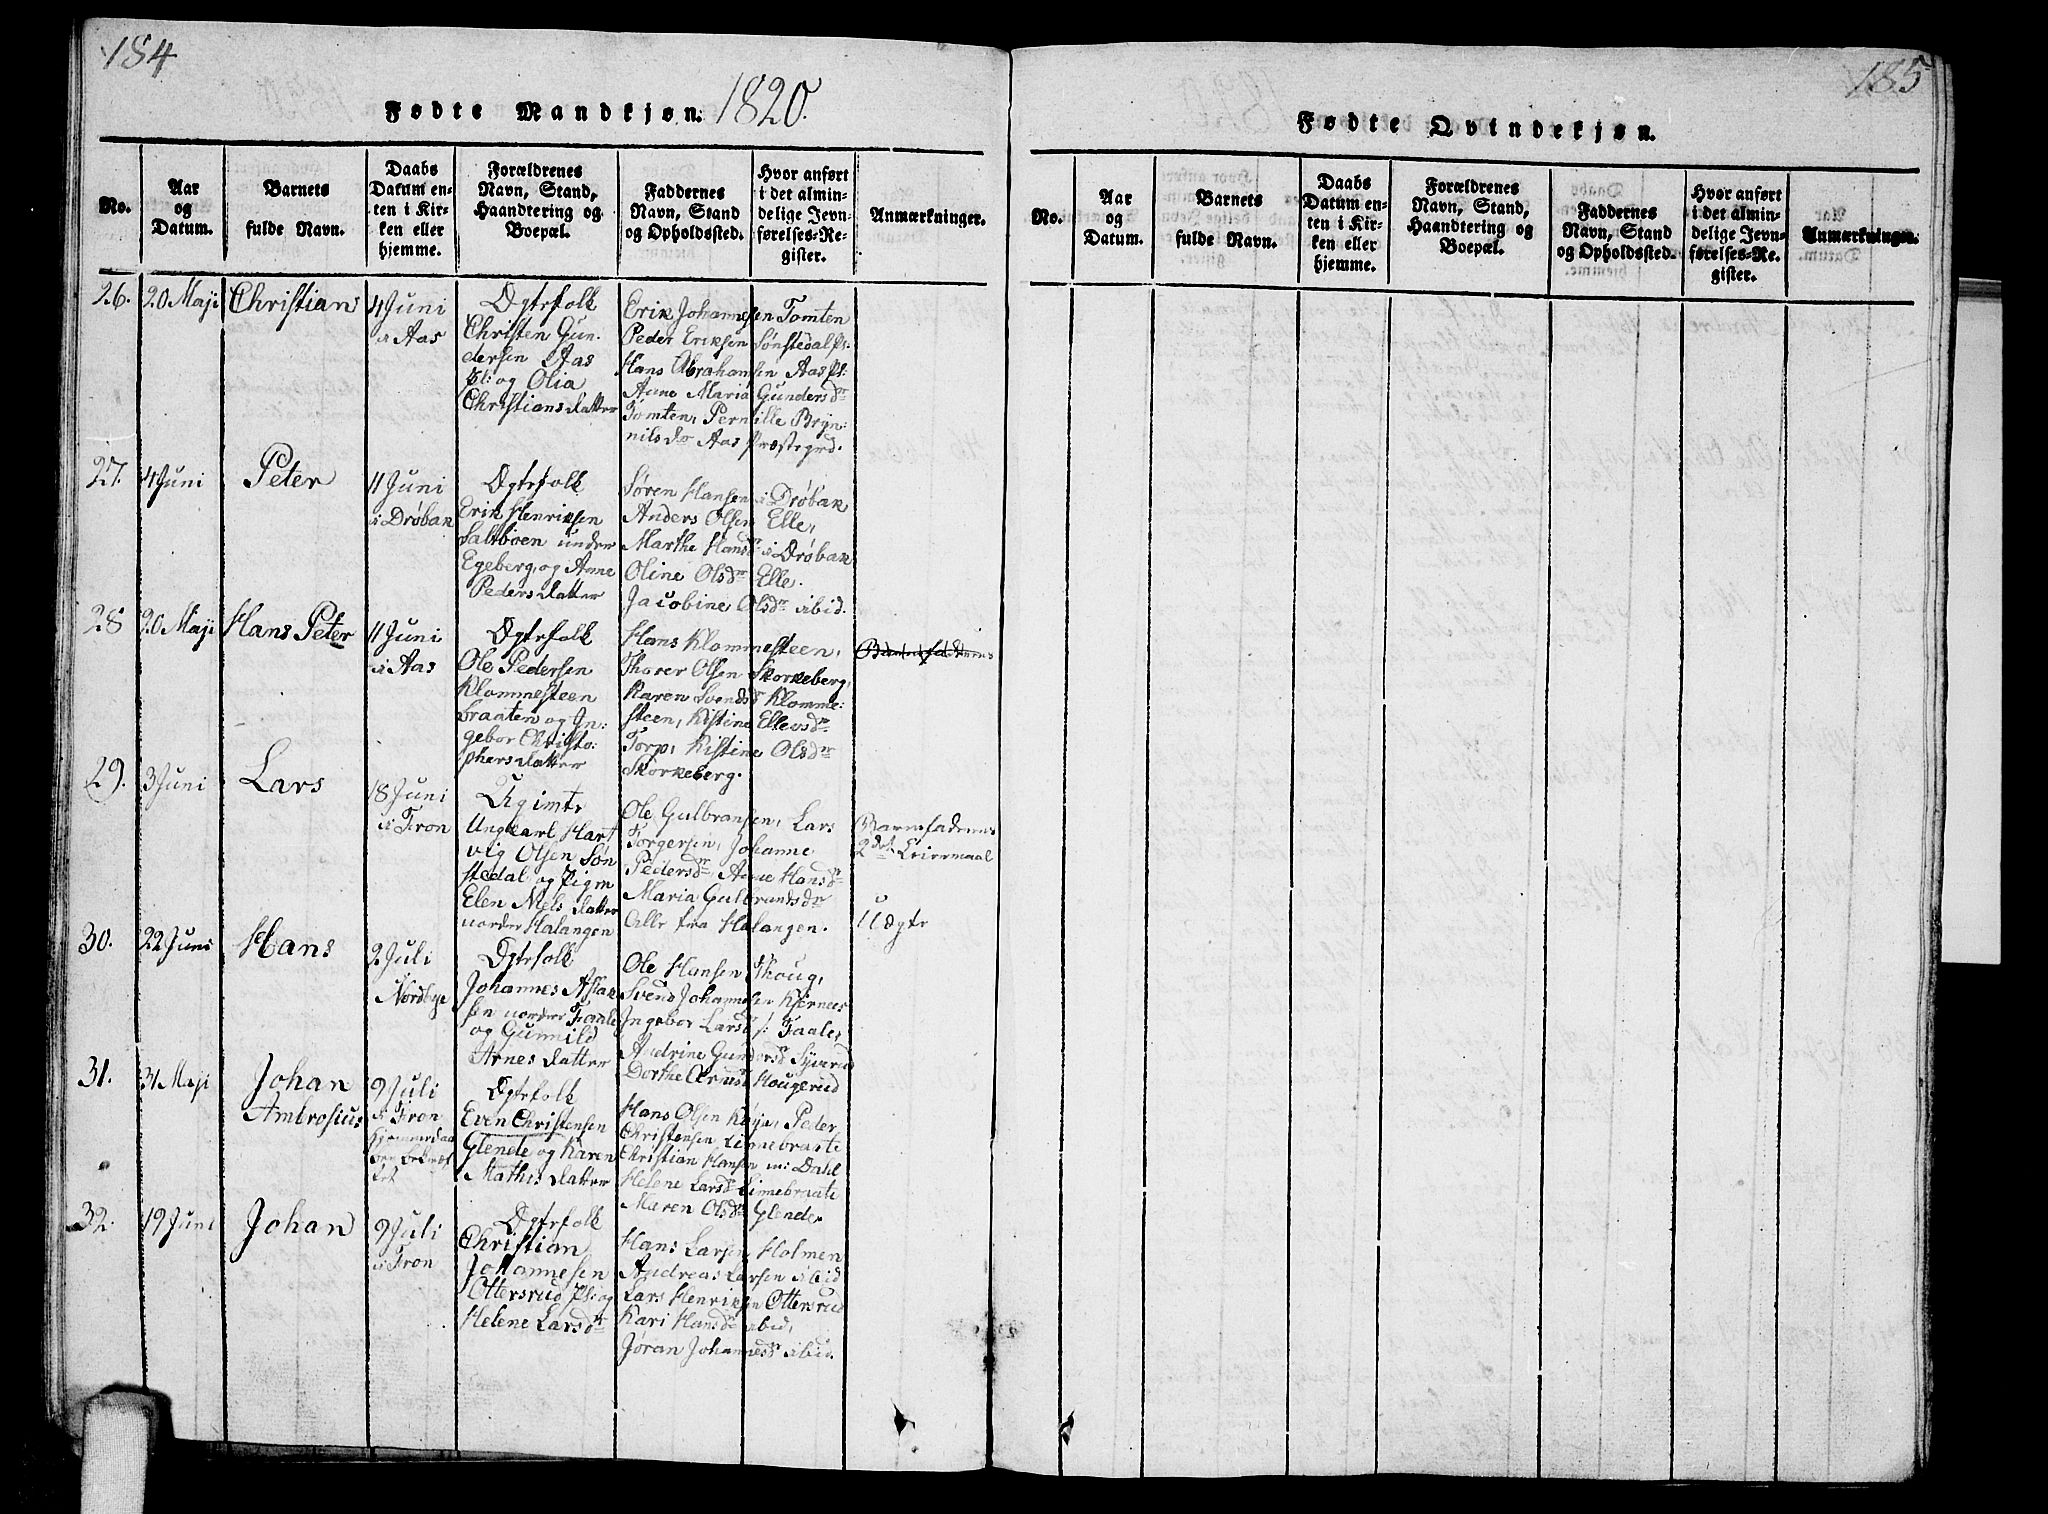 184
Fødte Mandkjøn. 1820.
No.
Aar
og
Datum.
Barnets
fulde Navn.
Daabs
Datum en-
ten i Kir-
ken eller
hjemme.
Forældrenes
Navn, Stand,
Haandtering og
Boepæl.
Faddernes
Navn, Stand
og Opholdssted.
Hvor anført
i det almin-
delige Jevn-
førelses-Re-
gister.
Anmærkninger.
26.
20 Maji
Christian
4 Juni
i Aas
Ægtefolk
Christen Gun-
dersen Aas
pl: og Olia
Christiansdatter
Erik Johannesen Tomten
Peder Eriksen Sønstedal pl:
Hans Abrahamsen Aas pl:
Anne Maria Gundersdr
Tomten, Pernille Bryn-
nilsdr Aas Præstegrd.
27.
4 Juni
Peter
11 Juni
i Drøbak
Ægtefolk
Erik Henriksen
Saltboen under
Egeberg, og Anne
Pedersdatter
Søren Hansen i Drøbak
Anders Olsen Elle,
Marthe Hansdr i Drøbak
Oline Olsdr Elle.
Jacobine Olsdr ibid.
28
20 Maji
Hans Peter
11 Juni
i Aas
Ægtefolk
Ole Pedersen
Klommesteen
Braaten og In-
gebor Christo-
phersdatter
Hans Klommesteen,
Thorer Olsen Skorkeberg,
Karen Svendsdr Klomme-
steen, Kistine Ellevsdr
Torp, Kistine Olsdr
Skorkeberg.
29.
3 Juni
Lars
18 Juni
i Fron
Ungkarl Hart
vig Olsen Søn
stedal og Pigen
Elen Nelsdatter
norder Halangen
Ole Gulbransen, Lars
Torgersen, Johanne
Pedersdr, Anne Hansdr
Maria Gulbrandsdr
Alle fra Halangen.
Barnefaderens
2det Leiermaal
Uægte
30.
22 Juni
Hans
2 Juli
Nordbye
Ægtefolk
Johannes Aslak
sen norder Faale
og Gunnild
Arnesdatter
Ole Hansen Skoug,
Svend Johannesen Kjernees
Ingebor Larsdr Faale,
Andrine Gundersdr Syverud
Dorthe Arnesdr Hougerud
31.
31 Maji
Johan
Ambrosius
9 Juli
i Fron
hjemmedaa
ben bekræf
tet
Ægtefolk
Even Christensen
Glende og Karen
Mathisdatter
Hans Olsen Kaye, Peder
Christensen Linnebraate
Christian Hansen n: Dahl
Helene Larsdr Linnebraate
Maren Olsdr Glender
32.
19 Juni
Johan
9 Juli
i Fron
Ægtefolk
Christian
Johannesen
Ottersrud Pl: og
Helene Larsdr
Hans Larsen Holmen
Andreas Larsen ibid
Lars Henriksen Ottersrud
Kari Hansdr ibid,
Jøran Johannesdr ibid.
185
Fødte Qvindekjøn.
No.
Aar
og
Datum.
Barnets
fulde Navn.
Daabs
Datum en-
ten i Kir-
ken eller
hjemme.
Forældrenes
Navn, Stand,
Haandtering og
Boepæl.
Faddernes
Navn, Stand
og Opholdssted.
Hvor anført
i det almin-
delige Jevn-
førelses-Re-
gister.
Anmærkninger.